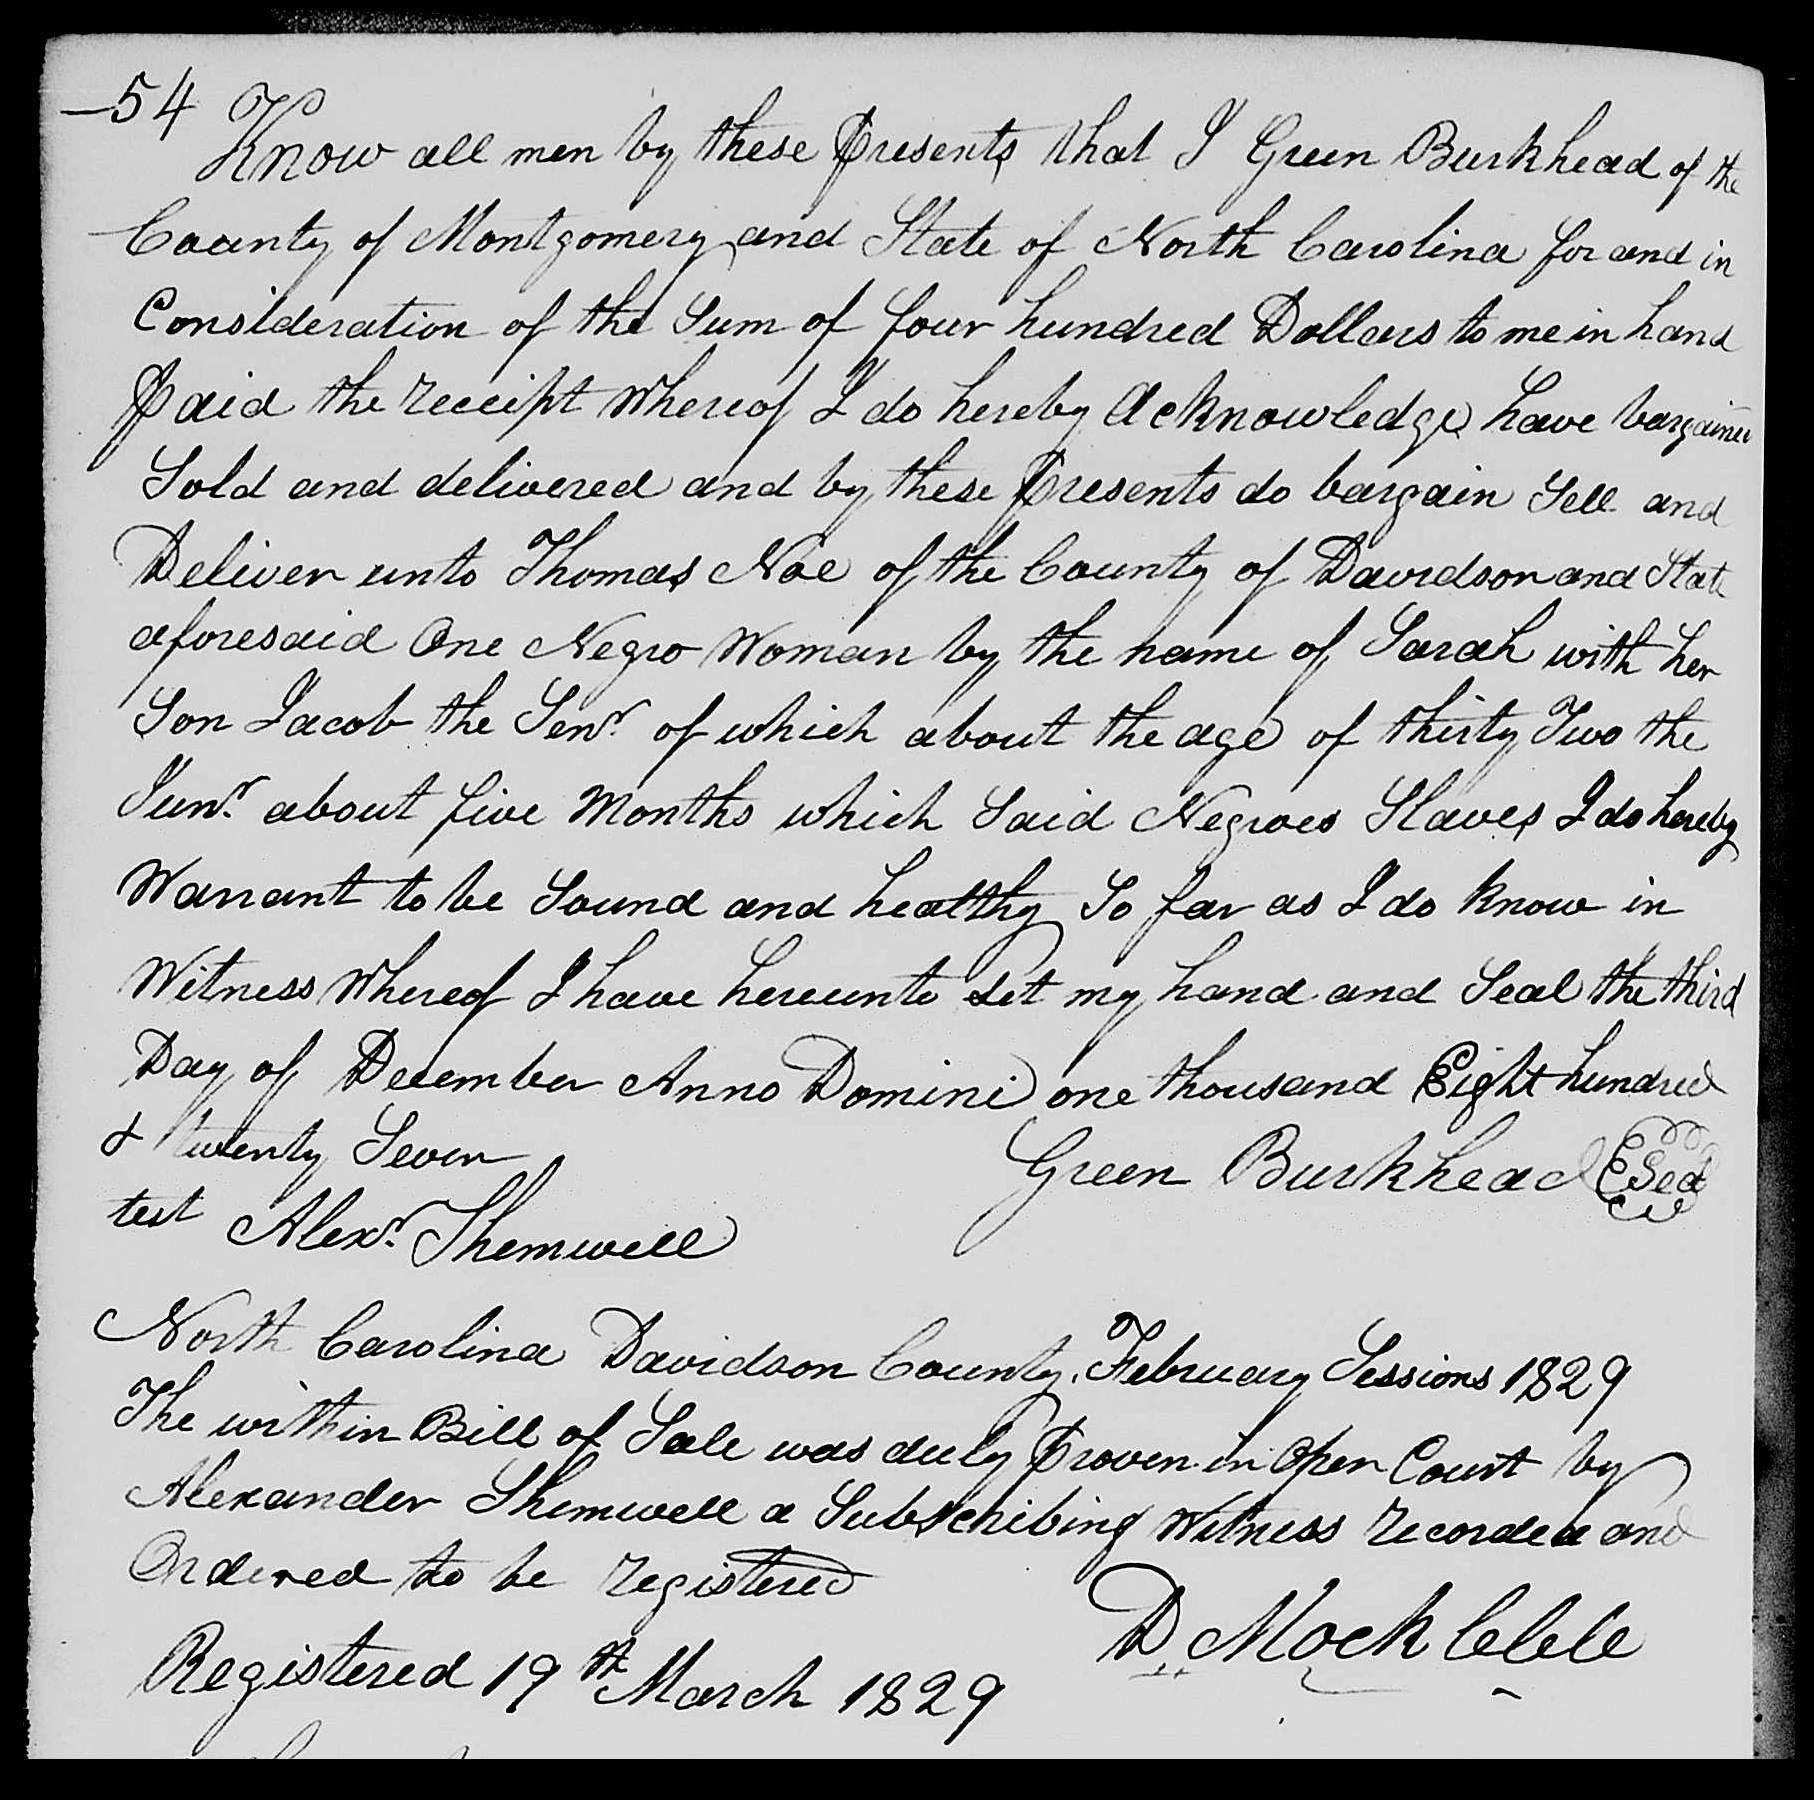 54
Know all men by these Presents that I Green Burkhead of the
County of Montgomery and State of North Carolina for and in
Consideration of the Sum of four hundred Dollars to me in hand
Paid the receipt Whereof I do hereby Acknowledge have bargained
Sold and delivered and by these Presents do bargain Sell and
Deliver unto Thomas Noe of the County of Davidson and State
aforesaid One Negro Woman by the name of Sarah with her
Son Jacob the Senr. of which about the age of thirty Two the
Junr. about five Months which Said Negroes Slaves I do hereby
Warrant to be Sound and healthy So far as I do know in
Witness Whereof I have hereunto Set my hand and Seal the third
Day of December Anno Domini one thousand Eight hundred
& twenty Seven
Green Burkhead Seal
test Alexr. Shemwell
North Carolina Davidson County. February Sessions 1829
The within Bill of Sale was duly Proven in Open Court by
Alexander Shemwell a Subscribing Witness recorded and
Ordered to be registered
D. Mock
Registered 19th March 1829